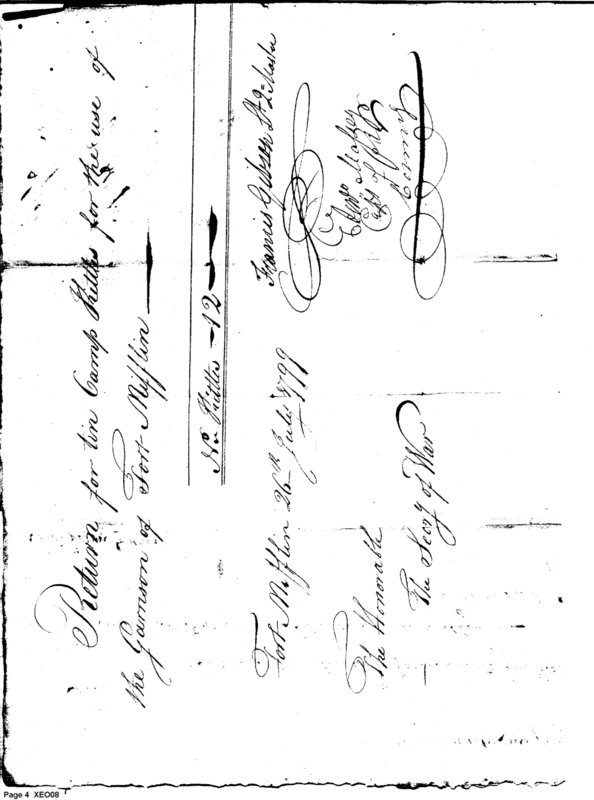 Return for tin Camp Kittles for the use of
the Garrison of Fort Mifflin
No. Kittles — 12
Fort Mifflin 26th July 1799
Francis Gibson Qr Master
Capt of
Comm
The Honorable
The Secry of War
Page 4 XEO08